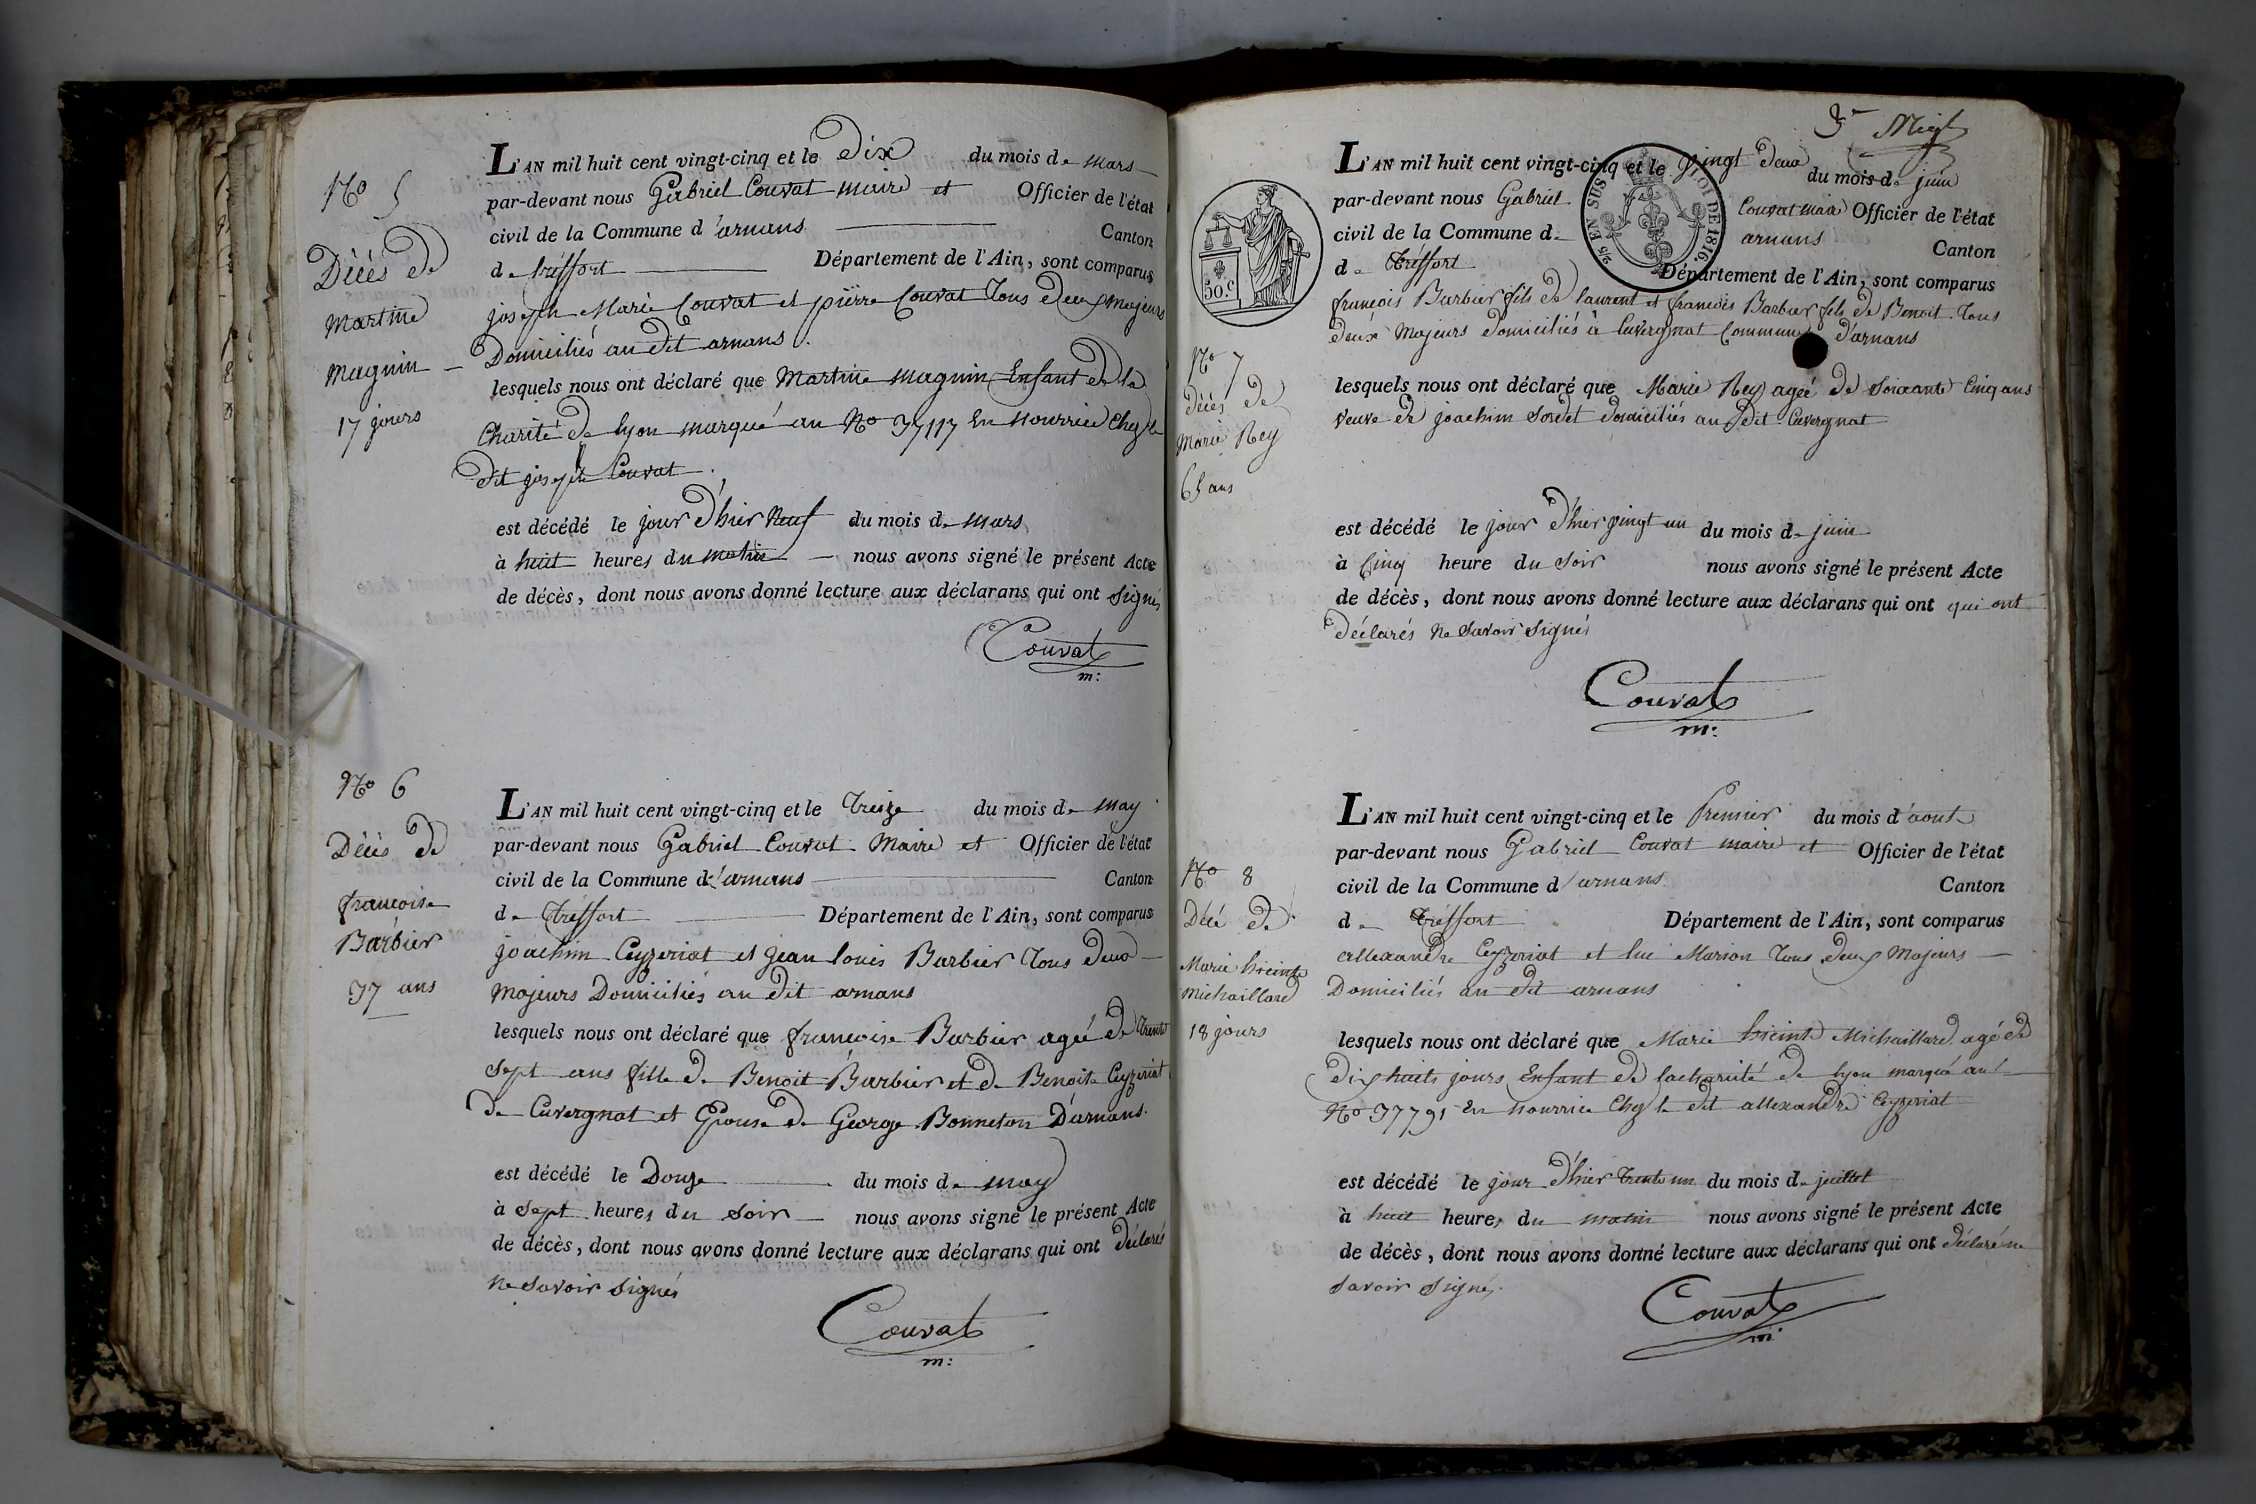 No 5
Décès de
Martine
Magnin
17 jours
L'AN mil huit cent vingt-cinq et le Dix du mois de mars
par-devant nous Gabriel Couvat maire et Officier de l'état
civil de la Commune d'arnans Canton
de tréffort Département de l'Ain, sont comparus
joseph Marie Couvat et pierre Couvat Tous deux majeurs
Domiciliés au dit arnans.
lesquels nous ont déclaré que Martine Magnin Enfant de la
Charité de lyon marqué au No 37117 En Nourrice Chez le
dit joseph Couvat.
est décédé le jour d'hier Neuf du mois de mars
à huit heures du matin nous avons signé le présent Acte
de décès, dont nous avons donné lecture aux déclarans qui ont signés
Couvat
m:
No 6
Décès de
francoise
Barbier
37 ans
L'AN mil huit cent vingt-cinq et le Treize du mois de may
par-devant nous Gabriel Couvat Maire et Officier de l'état
civil de la Commune d'arnans Canton
de Tréffort Département de l'Ain, sont comparus
joachim Ceyzeriat et jean louis Barbier Tous deux
majeurs Domiciliés au dit arnans
lesquels nous ont déclaré que francoise Barbier agée de Trente
sept ans fille de Benoit Barbier et de Benoite Ceyzeriat
de Cuvergnat et Epouse de George Bonneton D'arnans.
est décédé le Douze du mois de may
à sept heures du soir nous avons signé le présent Acte
de décès, dont nous avons donné lecture aux déclarans qui ont déclarés
ne savoir signés
Couvat
m:
50.C
2/10 EN SUS
LOI DE 1816.
No 7
Décès de
Marie Rey
65 ans
L'AN mil huit cent vingt-cinq et le vingt deux du mois de juin
par-devant nous Gabriel Couvat maire Officier de l'état
civil de la Commune d- arnans Canton
de Tréffort Département de l'Ain, sont comparus
francois Barbier fils de laurent et francois Barbier fils de Benoit Tous
deux Majeurs domiciliés à Cuvergnat Commune d'arnans
lesquels nous ont déclaré que Marie Rey agée de soixante Cinq ans
veuve de joachim Sordet domiciliés au dit Cuvergnat
est décédé le jour d'hier vingt un du mois de juin
à Cinq heure du soir nous avons signé le présent Acte
de décès, dont nous avons donné lecture aux déclarans qui ont qui ont
déclarés Ne savoir signés
Couvat
m:
No 8
Décé de
Marie hicinte
Michaillard
18 jours
L'AN mil huit cent vingt-cinq et le Premier du mois d'aout
par-devant nous Gabriel Couvat maire et Officier de l'état
civil de la Commune d'arnans Canton
de Tréffort Département de l'Ain, sont comparus
allexandre Ceyzeriat et luc Marion Tous deux Majeurs
Domiciliés au dit arnans
lesquels nous ont déclaré que Marie hicinte Michaillard agé de
dix huits jours Enfant de la charité de lyon marqué au
No 37791 En Nourrice Chez le dit allexandre Ceyzeriat
est décédé le jour d'hier trente un du mois de juillet
à huit heures du matin nous avons signé le présent Acte
de décès, dont nous avons donné lecture aux déclarans qui ont déclaré ne
savoir signés.
Couvat
m: